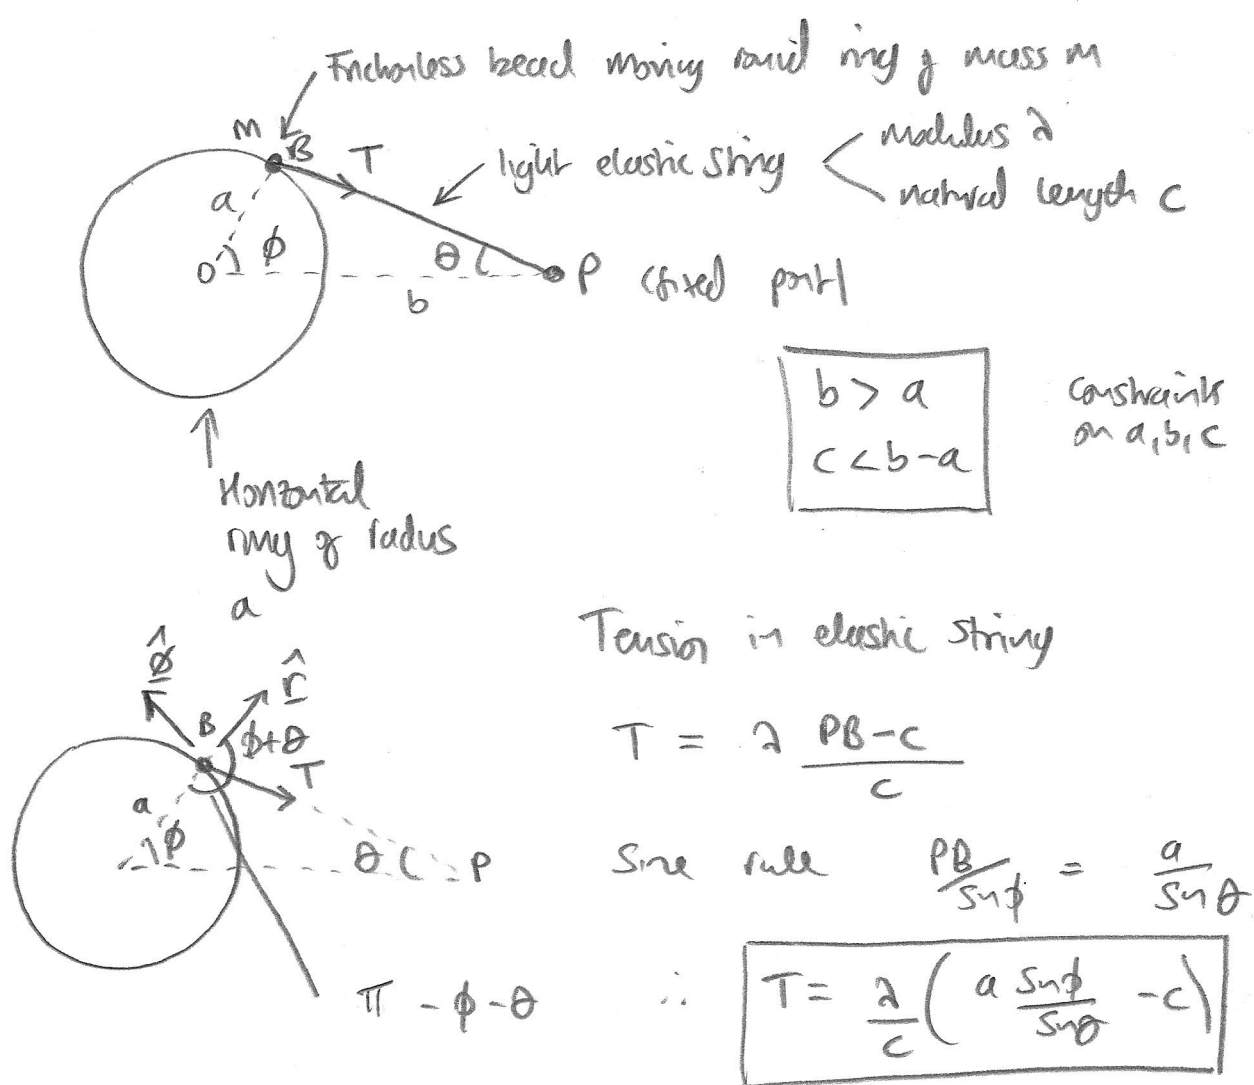 Frictionless bead moving round ring of mass m
m B T
light elastic string
modulus λ
natural length c
a
O ϕ θ P (fixed point)
b
b > a
c < b-a
constraints
on a, b, c
Horizontal
ring of radius
a
Tension in elastic string
ϕ̂ r̂
B ϕ+θ
T
T = λ (PB-c)/c
a
ϕ θ P
Sine rule PB/sinϕ = a/sinθ
π - ϕ - θ
∴ T = λ/c ( a sinϕ/sinθ - c )